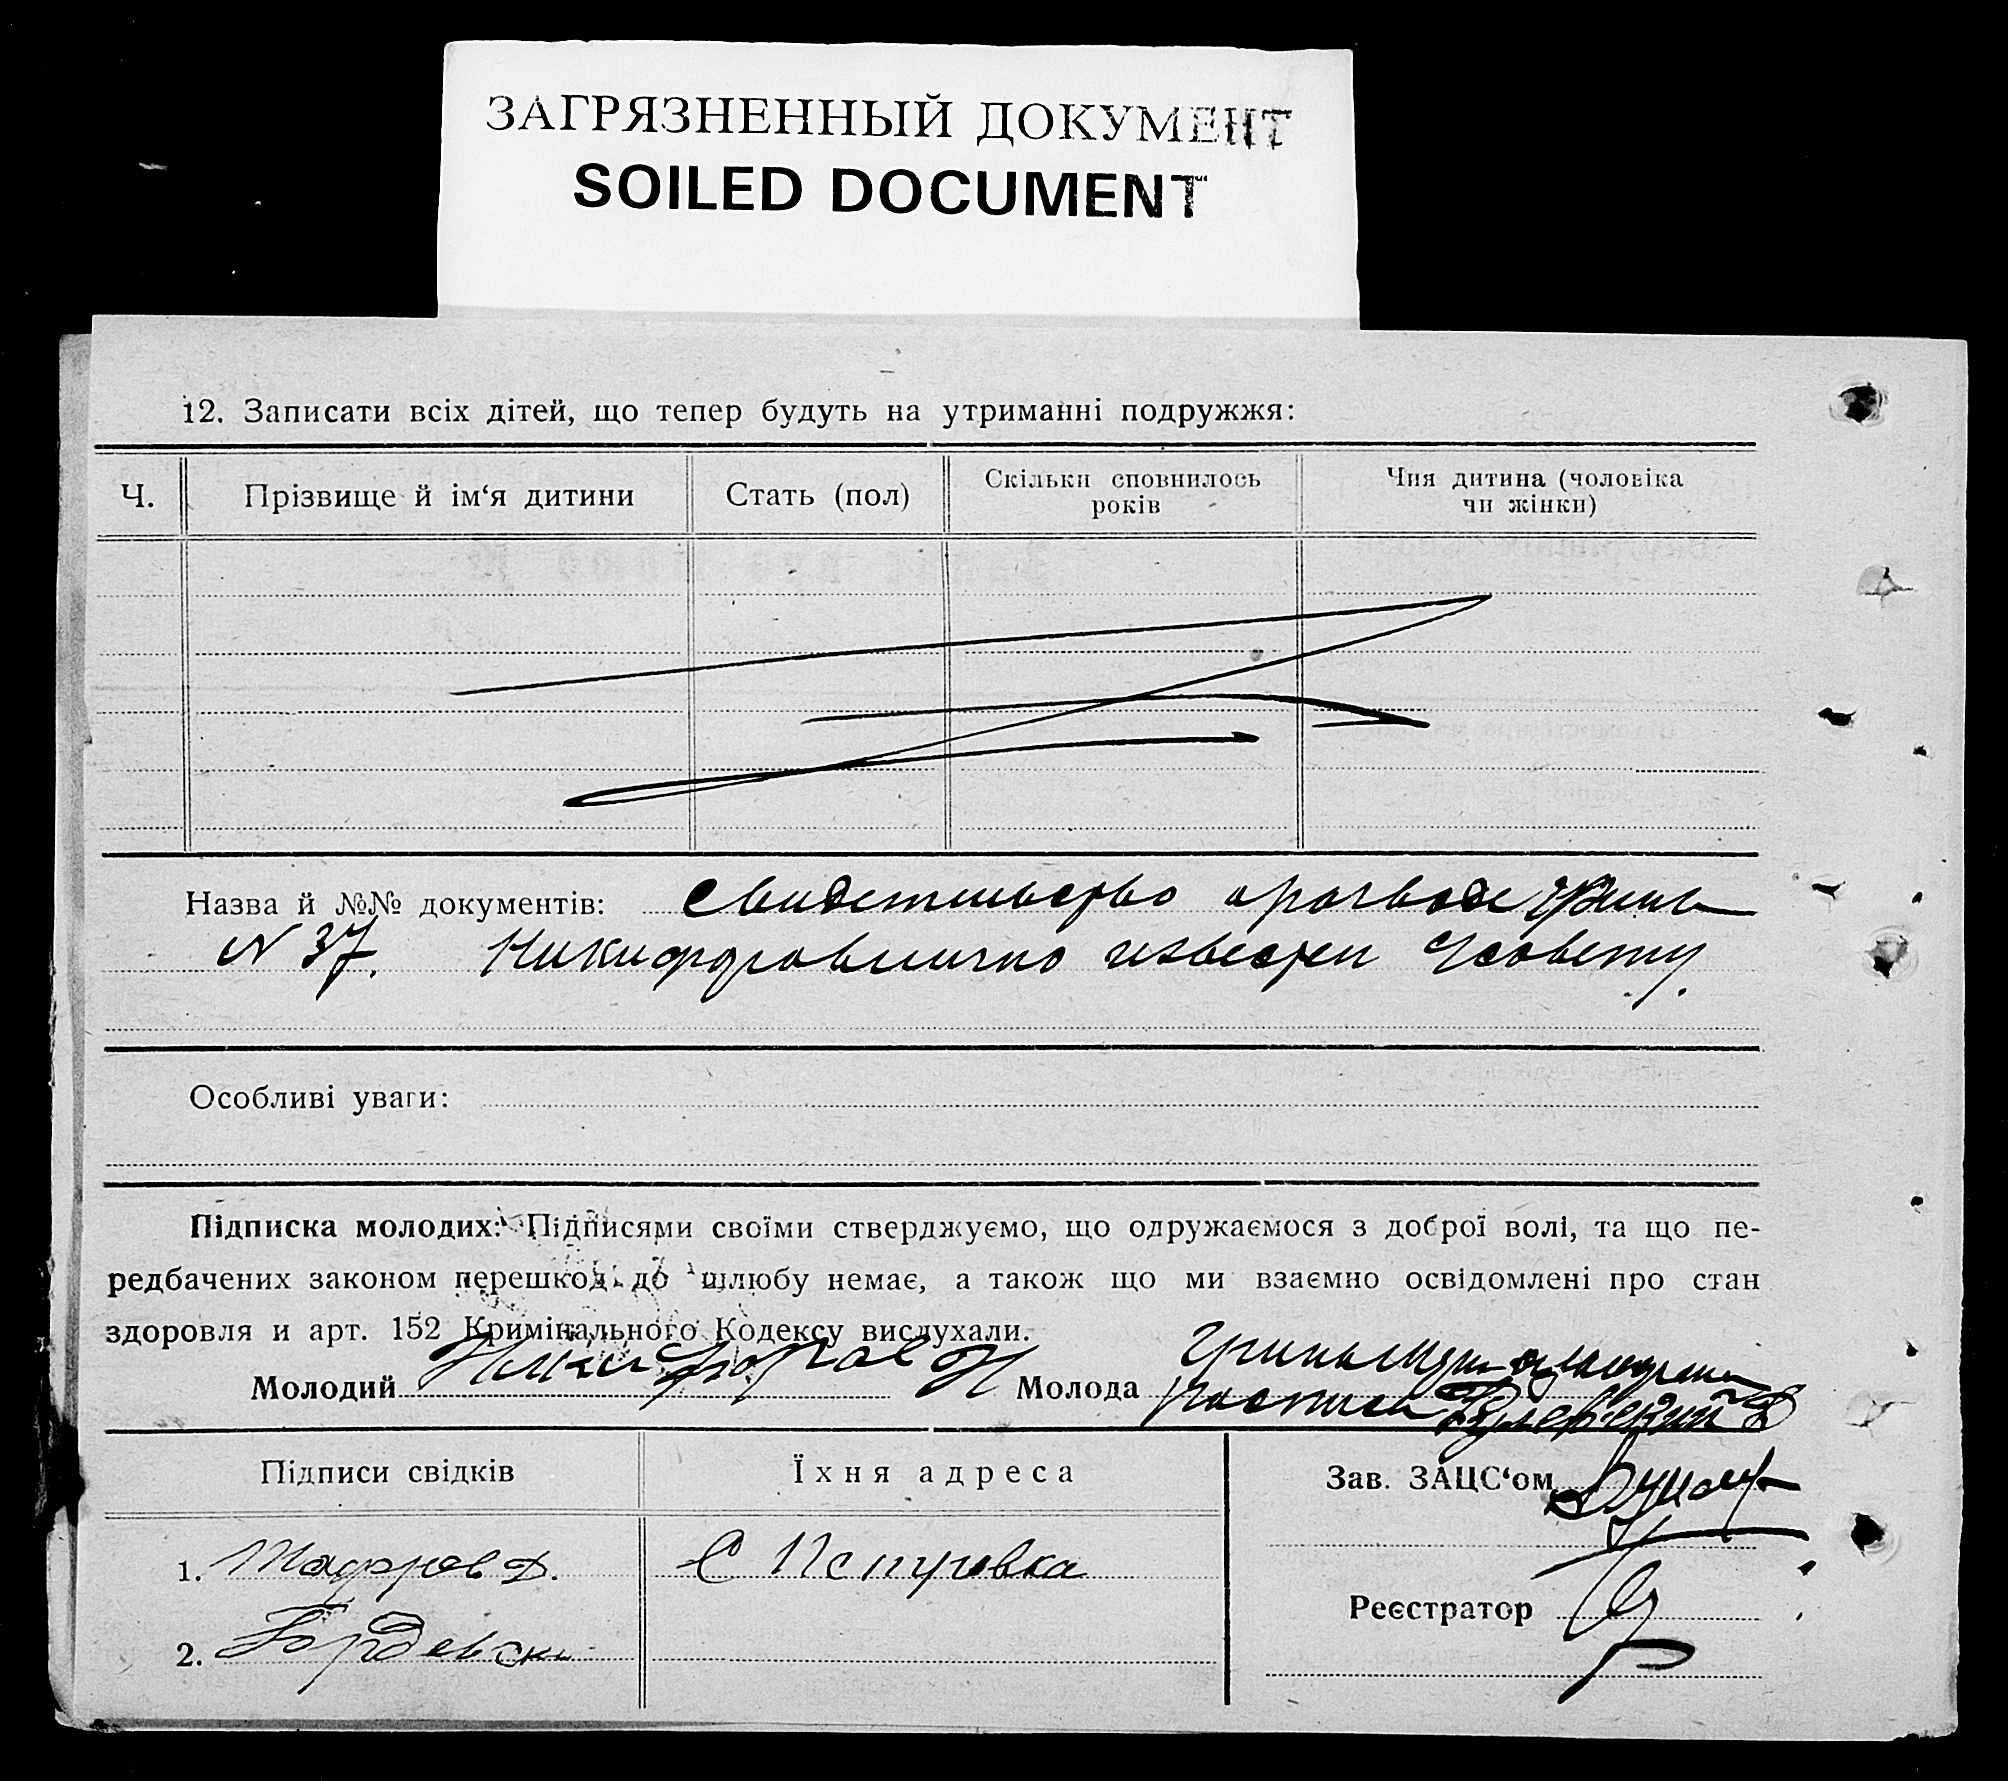 ЗАГРЯЗНЕННЫЙ ДОКУМЕНТ
SOILED DOCUMENT
12. Записати всіх дітей, що тепер будуть на утриманні подружжя:
Ч. Прізвище й ім‘я дитини Стать (пол) Скільки сповнилось років Чия дитина (чоловіка чи жінки)
Назва й №№ документів: Свидетельство о розводе
N 37. лично известен с/совету.
Особливі уваги:
Підписка молодих: Підписями своїми стверджуємо, що одружаємося з доброї волі, та що пе-
редбачених законом перешкод до шлюбу немає, а також що ми взаємно освідомлені про стан
здоровля и арт. 152 Кримінального Кодексу вислухали.
Молодий Никифоров Н Молода
Підписи свідків Їхня адреса Зав. ЗАЦС‘ом
1. С Петровка
Реєстратор
2.